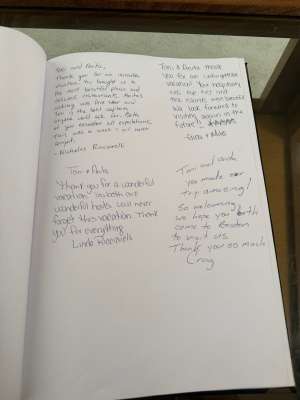 Toni and Anita,
Thank you for an incredible
vacation. You brought us to
the most beautiful places and
delicious restaurants. Anita's
cooking was five star and
Toni is the best captain
anyone could ask for. Both
of you exceeded all expectations.
This was a week I will never
forget.
- Nicholas Ricciarelli
Toni & Anita
Thank you for a wonderful
vacation. You both are
wonderful hosts. Will never
forget this vacation. Thank
you for everything
Linda Ricciarelli
Toni & Anita, Thank
you for an unforgettable
vacation! Your hospitality
was top tier and
the islands were beautiful
We look forward to
visiting again in the
future!!
Toni and Anita,
you made our
trip amazing!
So welcoming,
we hope you both
come to Boston
to visit us
Thank you so much
Craig